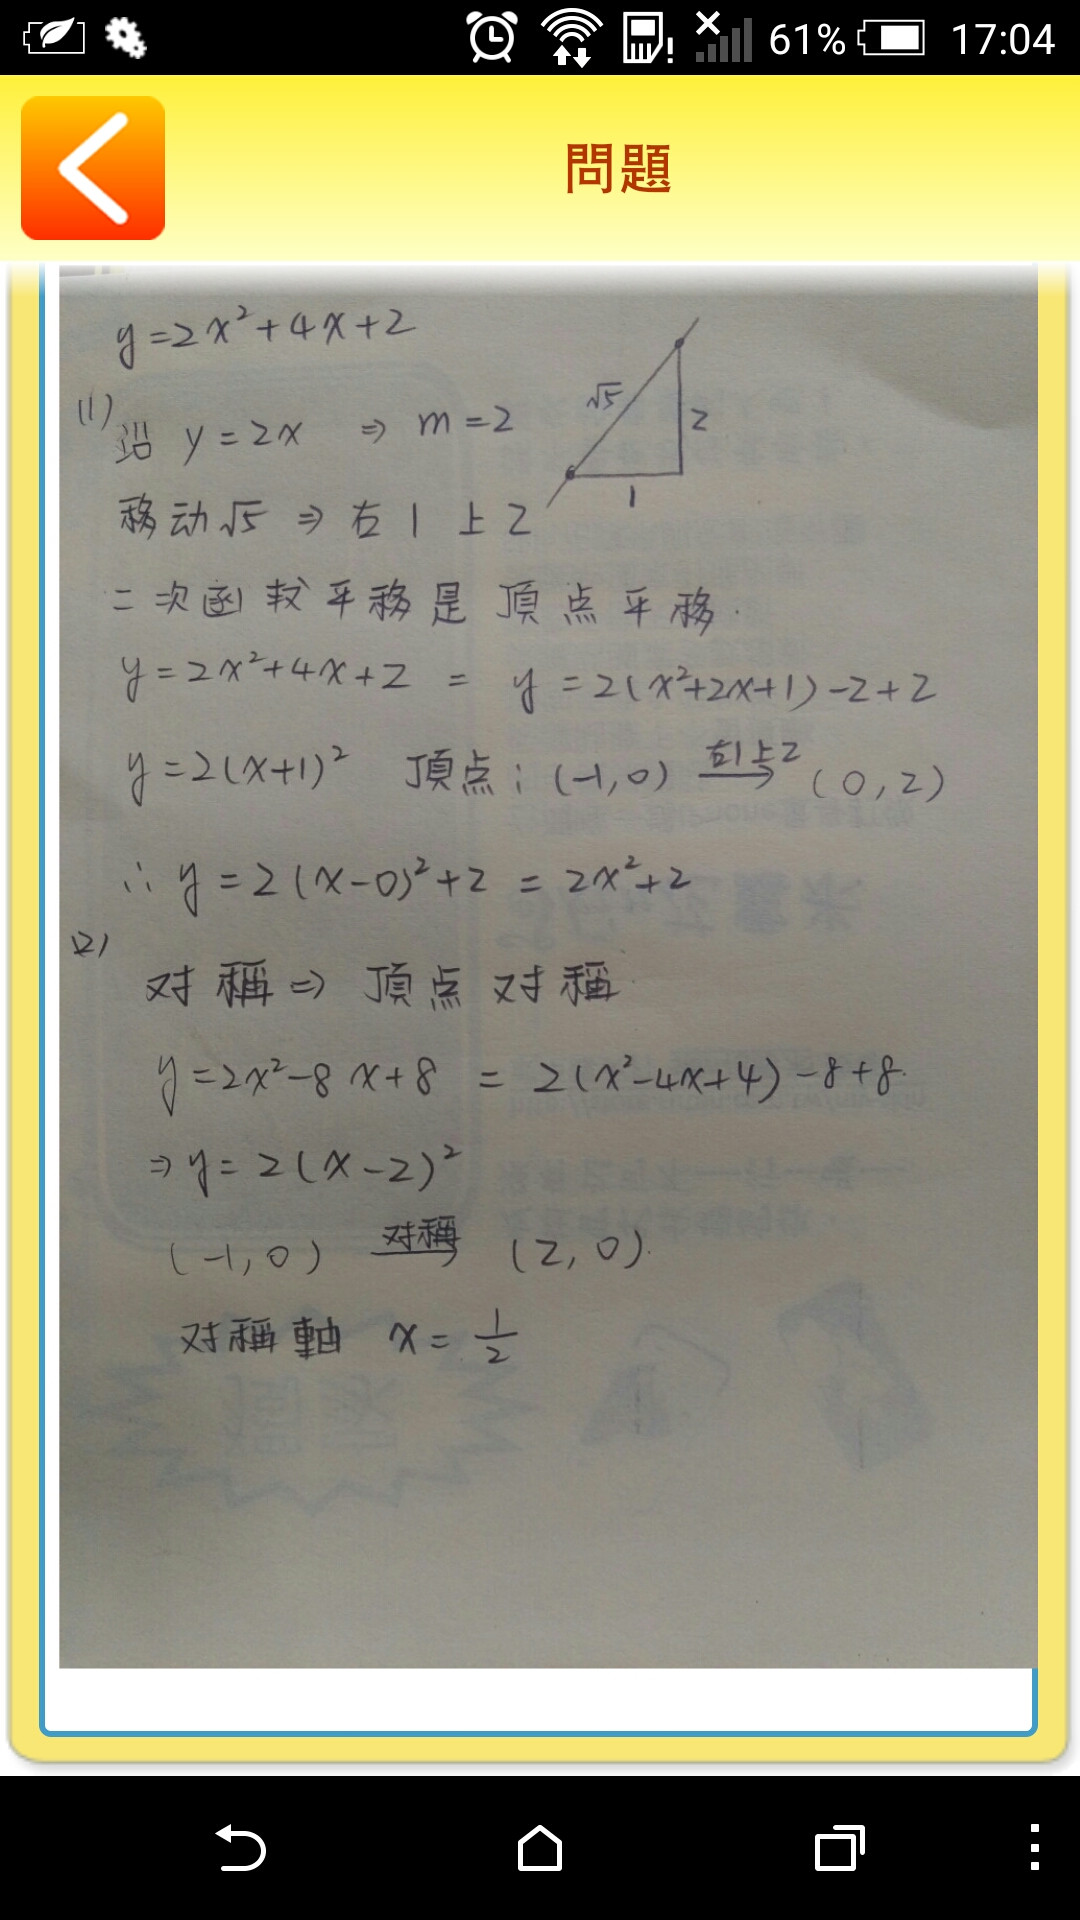 61% 17:04
問題
y=2x²+4x+2
(1) 沿 y=2x ⇒ m=2
√5 2 1
移动√5 ⇒ 右1上2
二次函数平移是頂点平移.
y=2x²+4x+2 = y=2(x²+2x+1)-2+2
y=2(x+1)² 頂点:(-1,0) 右1上2→ (0,2)
∴ y=2(x-0)²+2 = 2x²+2
(2)
对稱⇒頂点对稱
y=2x²-8x+8 = 2(x²-4x+4)-8+8.
⇒y=2(x-2)²
(-1,0) 对稱→ (2,0).
对稱軸 x=1/2